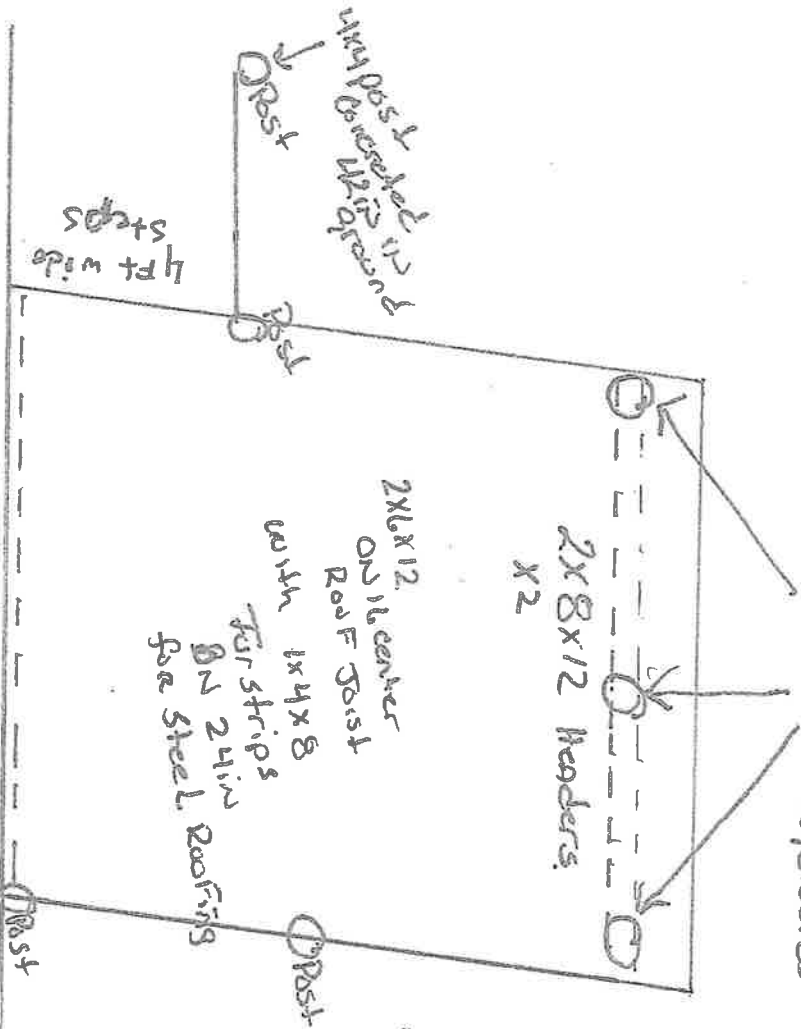 4x4 post
concreted
42in in
ground
Post
4 ft wide
steps
Post
2x8x12 Headers
x2
2x6x12
ON 16 center
Roof Joist
with 1x4x8
fur strips
ON 24in
for Steel Roofing
Post
Post